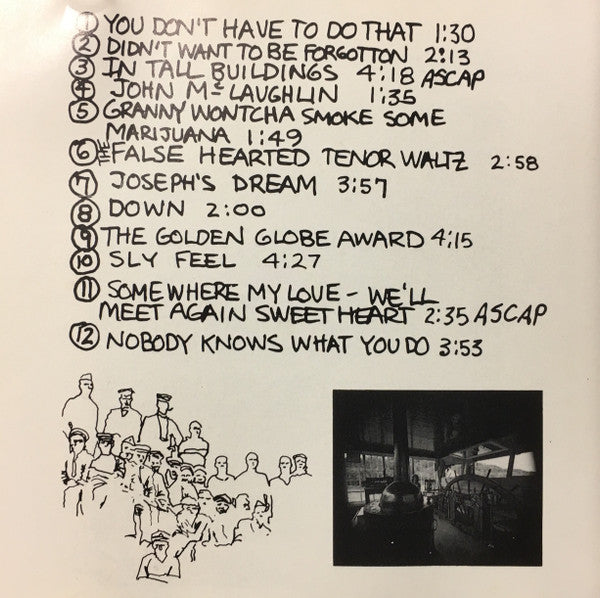 1 YOU DON'T HAVE TO DO THAT 1:30
2 DIDN'T WANT TO BE FORGOTTON 2:13
3 IN TALL BUILDINGS 4:18 ASCAP
4 JOHN McLAUGHLIN 1:35
5 GRANNY WONTCHA SMOKE SOME
MARIJUANA 1:49
6 THE FALSE HEARTED TENOR WALTZ 2:58
7 JOSEPH'S DREAM 3:57
8 DOWN 2:00
9 THE GOLDEN GLOBE AWARD 4:15
10 SLY FEEL 4:27
11 SOMEWHERE MY LOVE - WE'LL
MEET AGAIN SWEETHEART 2:35 ASCAP
12 NOBODY KNOWS WHAT YOU DO 3:53